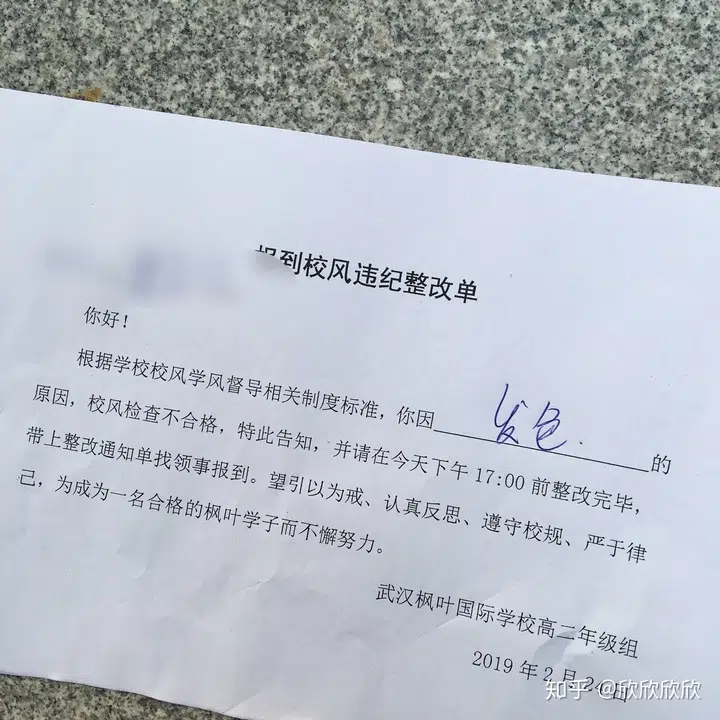 报到校风违纪整改单
你好！
根据学校校风学风督导相关制度标准，你因 发色. 的
原因，校风检查不合格，特此告知，并请在今天下午 17:00 前整改完毕，
带上整改通知单找领事报到。望引以为戒、认真反思、遵守校规、严于律
己，为成为一名合格的枫叶学子而不懈努力。
武汉枫叶国际学校高二年级组
2019 年 2 月 2 日
知乎 @欣欣欣欣